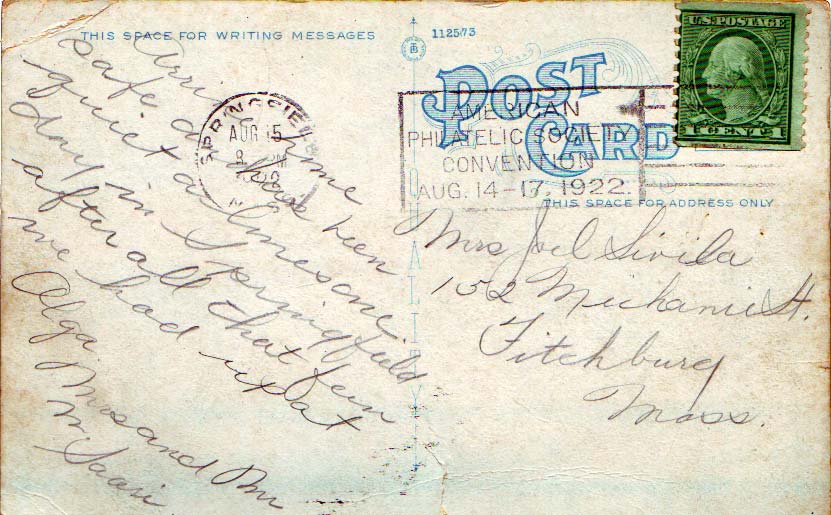 THIS SPACE FOR WRITING MESSAGES
112573
POST
CARD
THIS SPACE FOR ADDRESS ONLY
U.S. POSTAGE
1 CENT 1
SPRINGFIEL
AUG 15
8 M
AMERICAN
PHILATELIC SOCIETY
CONVENTION
AUG. 14-17, 1922.
home
safe has been
quiet a lonesome
day in Springfield
after all that fun
we had up at
Alga
Mrs and Mr
W. Saari
Mrs Joel Sivila
152 Mechanic St.
Fitchburg
Mass.
ALITY